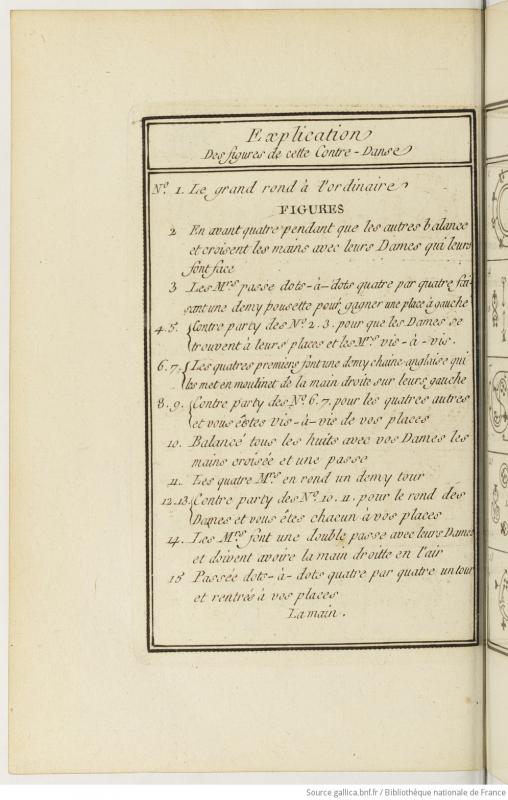 Explication
Des figures de cette Contre-Danse
Nº. 1. Le grand rond à l'ordinaire
FIGURES
2 En avant quatre pendant que les autres balance
et croisent les mains avec leurs Dames qui leurs
font face
3 Les Mrs passe dots-à-dots quatre par quatre fai-
sant une demy pousette pour gagner une place à gauche
4. 5. {Contre party des Nº 2. 3. pour que les Dames se
trouvent à leurs places et les Mrs vis-à-vis.
6. 7. {Les quatres premiers font une demy chaine anglaise qui
les met en moulinet de la main droit sur leurs gauche
8. 9. {Contre party des Nº 6. 7. pour les quatres autres
et vous êtes vis-à-vis de vos places
10. Balancé tous les huits avec vos Dames les
mains croisée et une passe
11. Les quatre Mrs en rond un demy tour
12. 13. {Contre party des Nº 10. 11. pour le rond des
Dames et vous êtes chacun à vos places
14. Les Mrs font une double passe avec leurs Dames
et doivent avoire la main droitte en l'air
15 Passée dots-à-dots quatre par quatre un tour
et rentrée à vos places
La main.
Source gallica.bnf.fr / Bibliothèque nationale de France